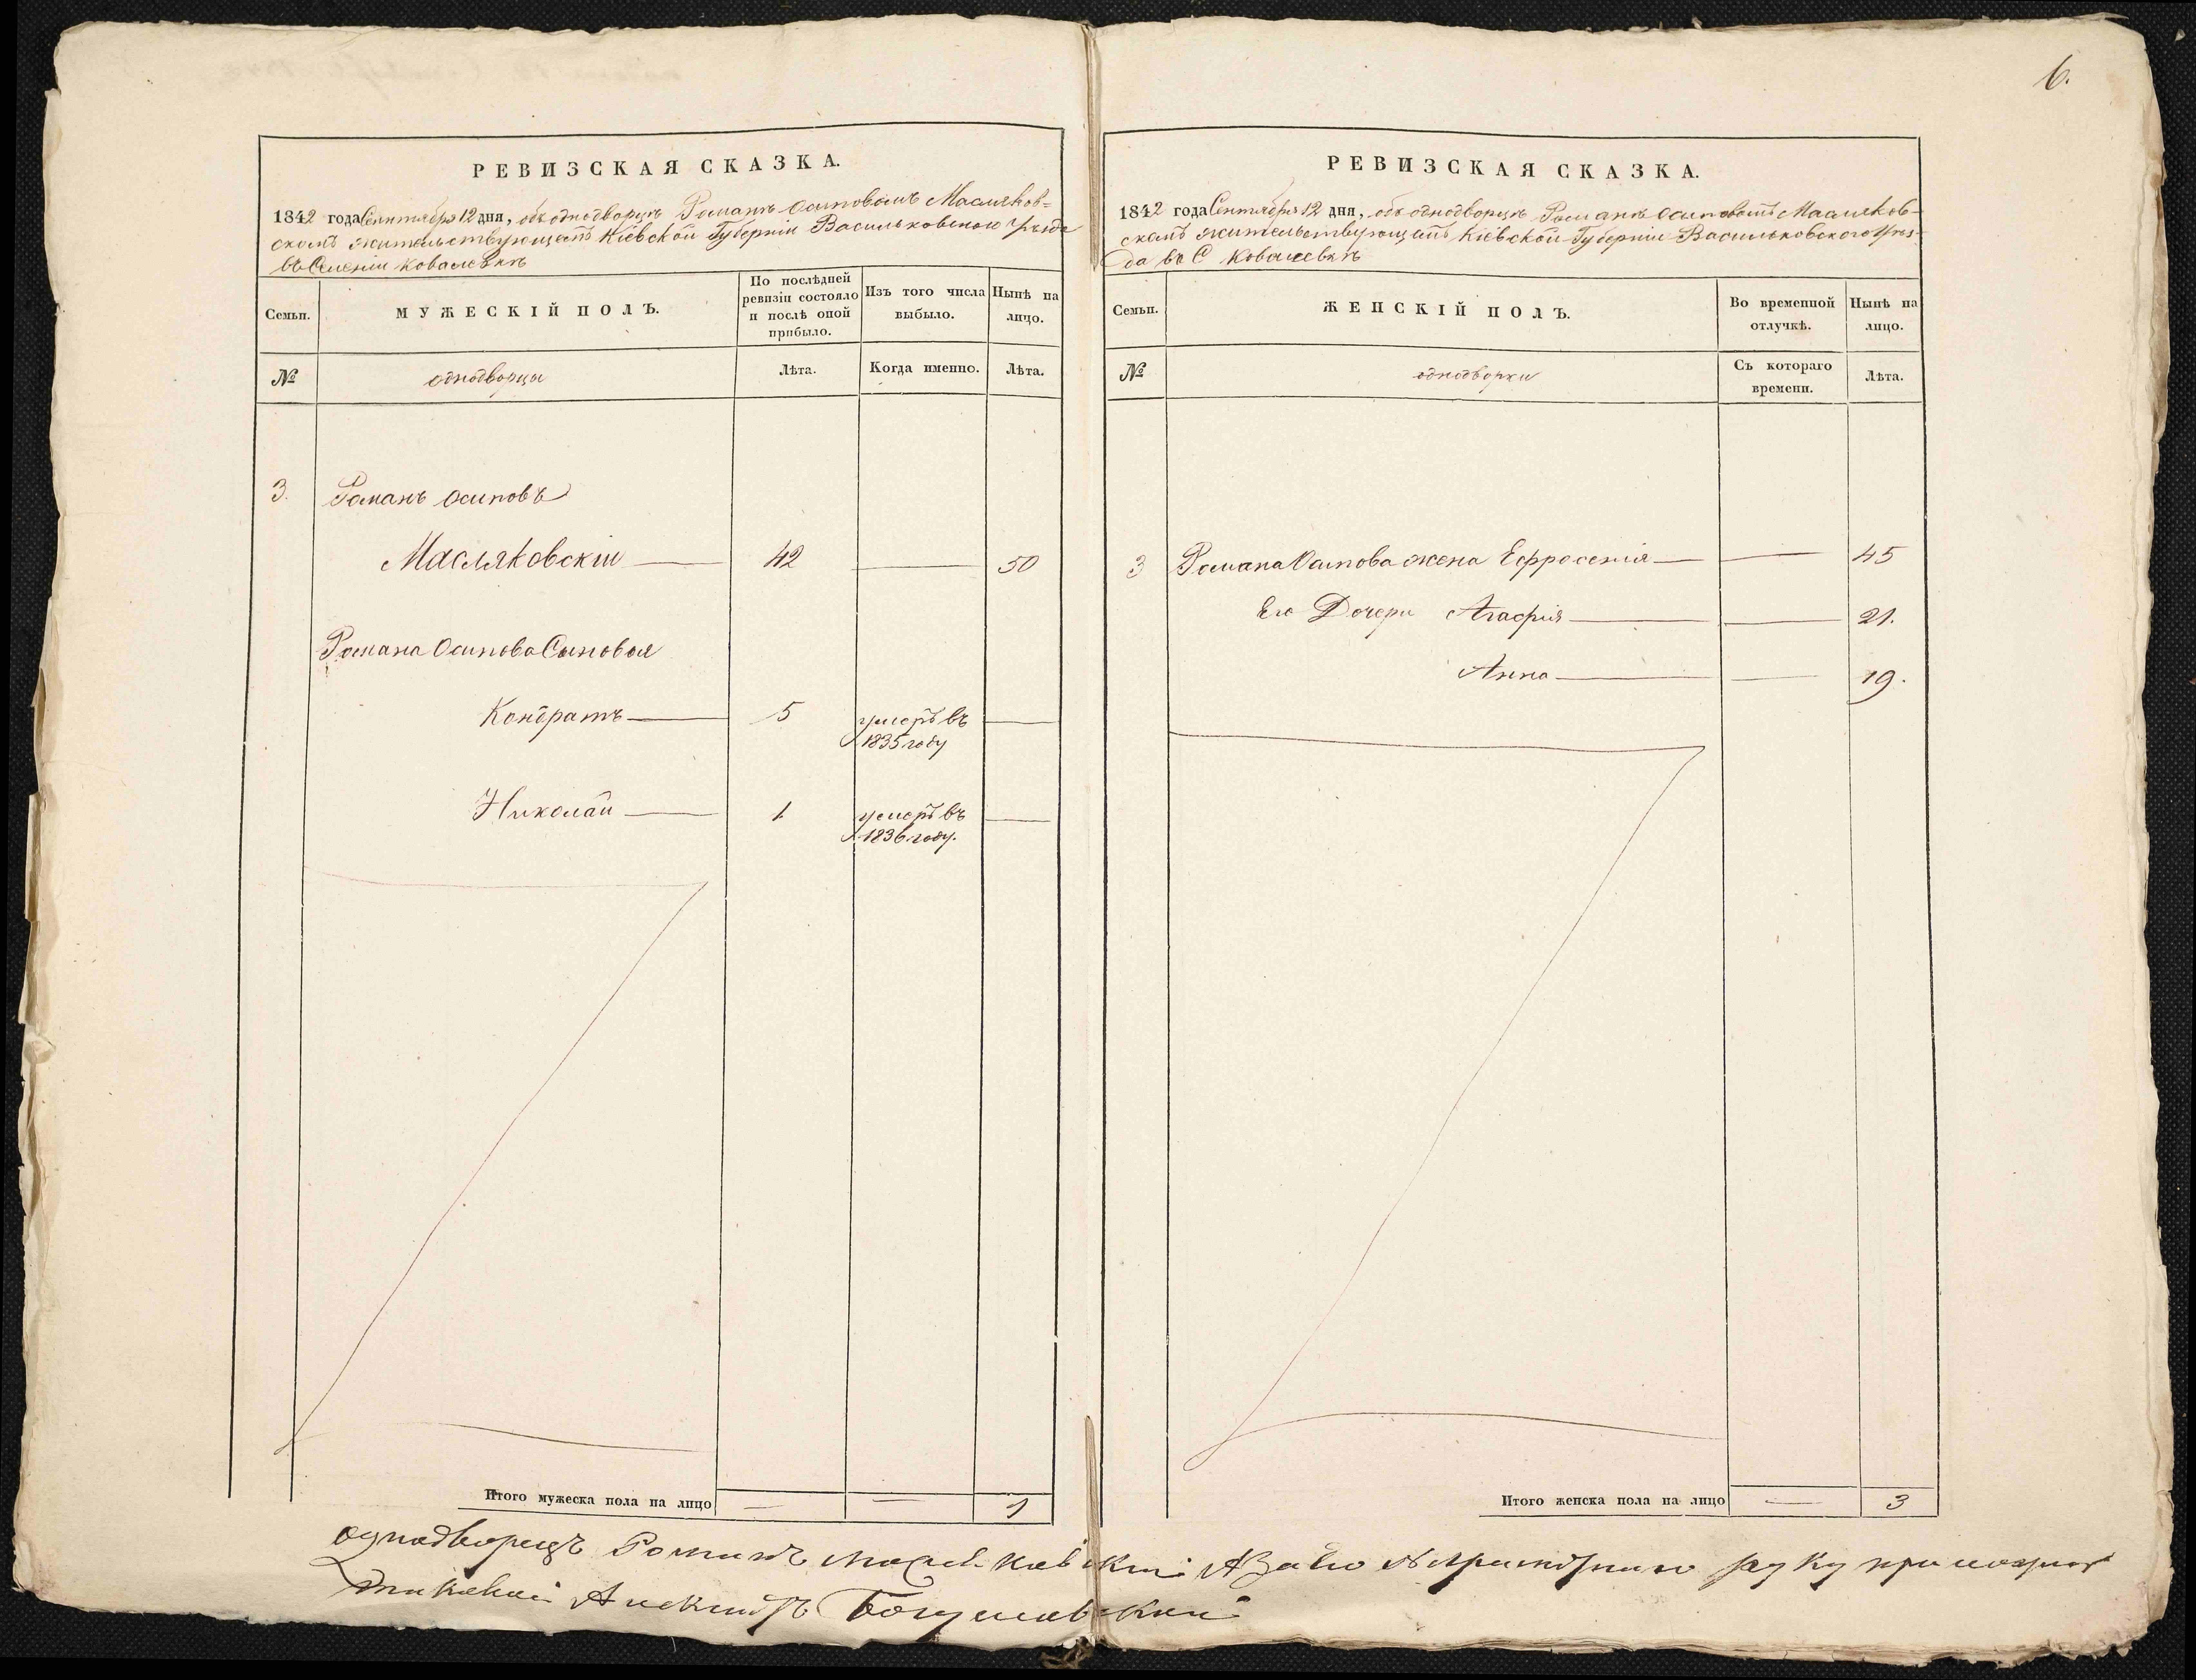 6.
РЕВИЗСКАЯ СКАЗКА.
1842 года Сентября 12 дня, объ однодворцѣ Романѣ Осиповомъ Масляков=
скомъ жительствующемъ Кіевской Губерніи Васильковского Уѣзда
въ Селеніи Ковалевкѣ
Семьи.
МУЖЕСКІЙ ПОЛЪ.
По послѣдней
ревизіи состояло
и послѣ оной
прибыло.
Изъ того числа
выбыло.
Нынѣ на
лицо.
№
однодворцы
Лѣта.
Когда именно.
Лѣта.
3. Романъ Осиповъ
Масляковскіи 42 50
Романа Осипова Сыновья
Кондратъ 5 умеръ въ
1835 году
Николай 1 умеръ въ
1836 году.
Итого мужеска пола на лицо 1
РЕВИЗСКАЯ СКАЗКА.
1842 года Сентября 12 дня, объ однодворцѣ Романѣ Осиповомъ Масляков-
скомъ жительствующемъ Кіевской Губерніи Васильковского Уѣз-
да въ С Ковалевкѣ
Семьи.
ЖЕНСКІЙ ПОЛЪ.
Во временной
отлучкѣ.
Нынѣ на
лицо.
№
однодворки
Съ котораго
времени.
Лѣта.
3 Романа Осипова жена Ефросенія 45
Его Дочери Агафия 21.
Анна 19.
Итого женска пола на лицо 3
однодворецъ Романъ руку